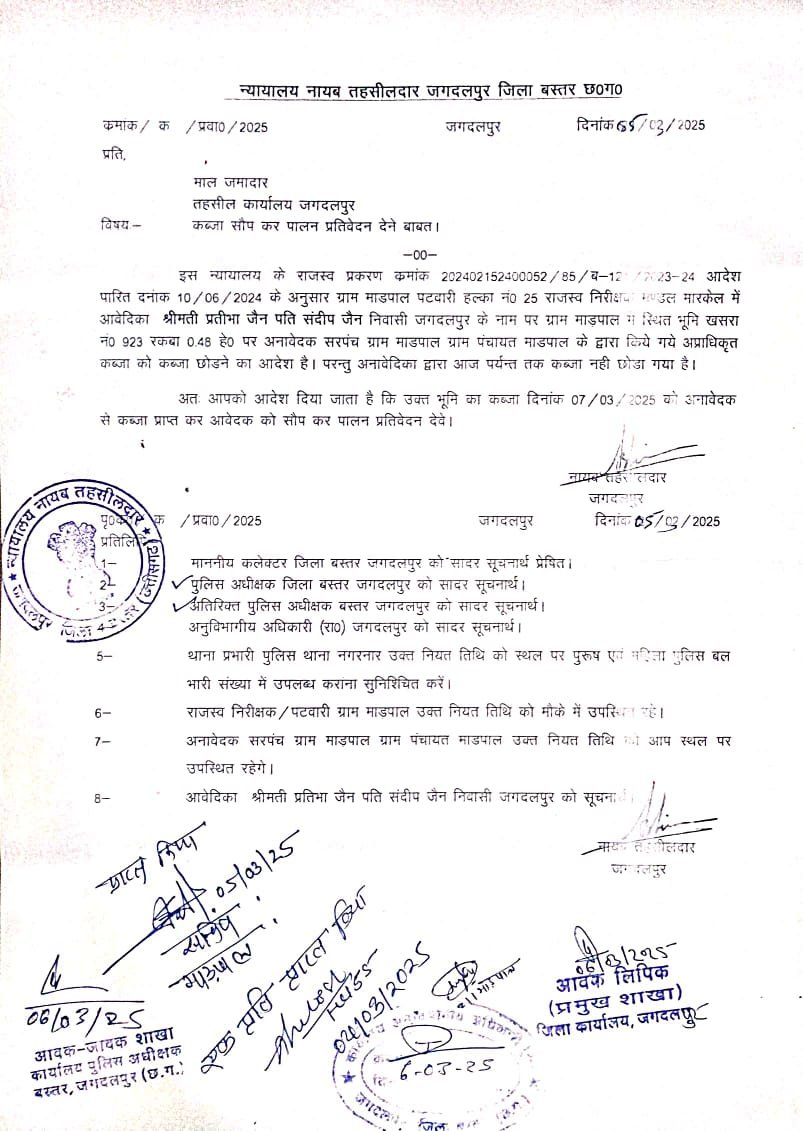 न्यायालय नायब तहसीलदार जगदलपुर जिला बस्तर छ0ग0
कमांक/ क /प्रवा0/2025 जगदलपुर दिनांक 05/03/2025
प्रति,
माल जमादार
तहसील कार्यालय जगदलपुर
विषय:– कब्जा सौप कर पालन प्रतिवेदन देने बाबत।
–00–
इस न्यायालय के राजस्व प्रकरण कमांक 202402152400052/85/ब-12 /2023-24 आदेश
पारित दनांक 10/06/2024 के अनुसार ग्राम माडपाल पटवारी हल्का नं0 25 राजस्व निरीक्षक मण्डल मारकेल में
आवेदिका श्रीमती प्रतीभा जैन पति संदीप जैन निवासी जगदलपुर के नाम पर ग्राम माड़पाल में स्थित भूमि खसरा
नं0 923 रकबा 0.48 हे0 पर अनावेदक सरपंच ग्राम माडपाल ग्राम पंचायत माडपाल के द्वारा किये गये अप्राधिकृत
कब्जा को कब्जा छोडने का आदेश है। परन्तु अनावेदिका द्वारा आज पर्यन्त तक कब्जा नही छोडा गया है।
अतः आपको आदेश दिया जाता है कि उक्त भूमि का कब्जा दिनांक 07/03/2025 को अनावेदक
से कब्जा प्राप्त कर आवेदक को सौप कर पालन प्रतिवेदन देवे।
नायब तहसीलदार
जगदलपुर
पृ0क0 क /प्रवा0/2025 जगदलपुर दिनांक 05/03/2025
प्रतिलिपि
1– माननीय कलेक्टर जिला बस्तर जगदलपुर को सादर सूचनार्थ प्रेषित।
2– पुलिस अधीक्षक जिला बस्तर जगदलपुर को सादर सूचनार्थ।
3– अतिरिक्त पुलिस अधीक्षक बस्तर जगदलपुर को सादर सूचनार्थ।
4 अनुविभागीय अधिकारी (रा0) जगदलपुर को सादर सूचनार्थ।
न्यायालय नायब तहसीलदार
जगदलपुर जिला बस्तर (छत्तीसगढ़)
5– थाना प्रभारी पुलिस थाना नगरनार उक्त नियत तिथि को स्थल पर पुरूष एवं महिला पुलिस बल
भारी संख्या में उपलब्ध कराना सुनिश्चित करें।
6– राजस्व निरीक्षक/पटवारी ग्राम माड़पाल उक्त नियत तिथि को मौके में उपस्थित रहे।
7– अनावेदक सरपंच ग्राम माड़पाल ग्राम पंचायत माडपाल उक्त नियत तिथि को आप स्थल पर
उपस्थित रहेगे।
8– आवेदिका श्रीमती प्रतिभा जैन पति संदीप जैन निवासी जगदलपुर को सूचनार्थ।
नायब तहसीलदार
जगदलपुर
प्राप्त किया
05/03/25
सचिव
माडपाल
एक प्रति प्राप्त किया
04/03/2025
माडपाल
06/03/25
आवक-जावक शाखा
कार्यालय पुलिस अधीक्षक
बस्तर, जगदलपुर (छ.ग.)
6-03-25
06/03/2025
आवक लिपिक
(प्रमुख शाखा)
जिला कार्यालय, जगदलपुर